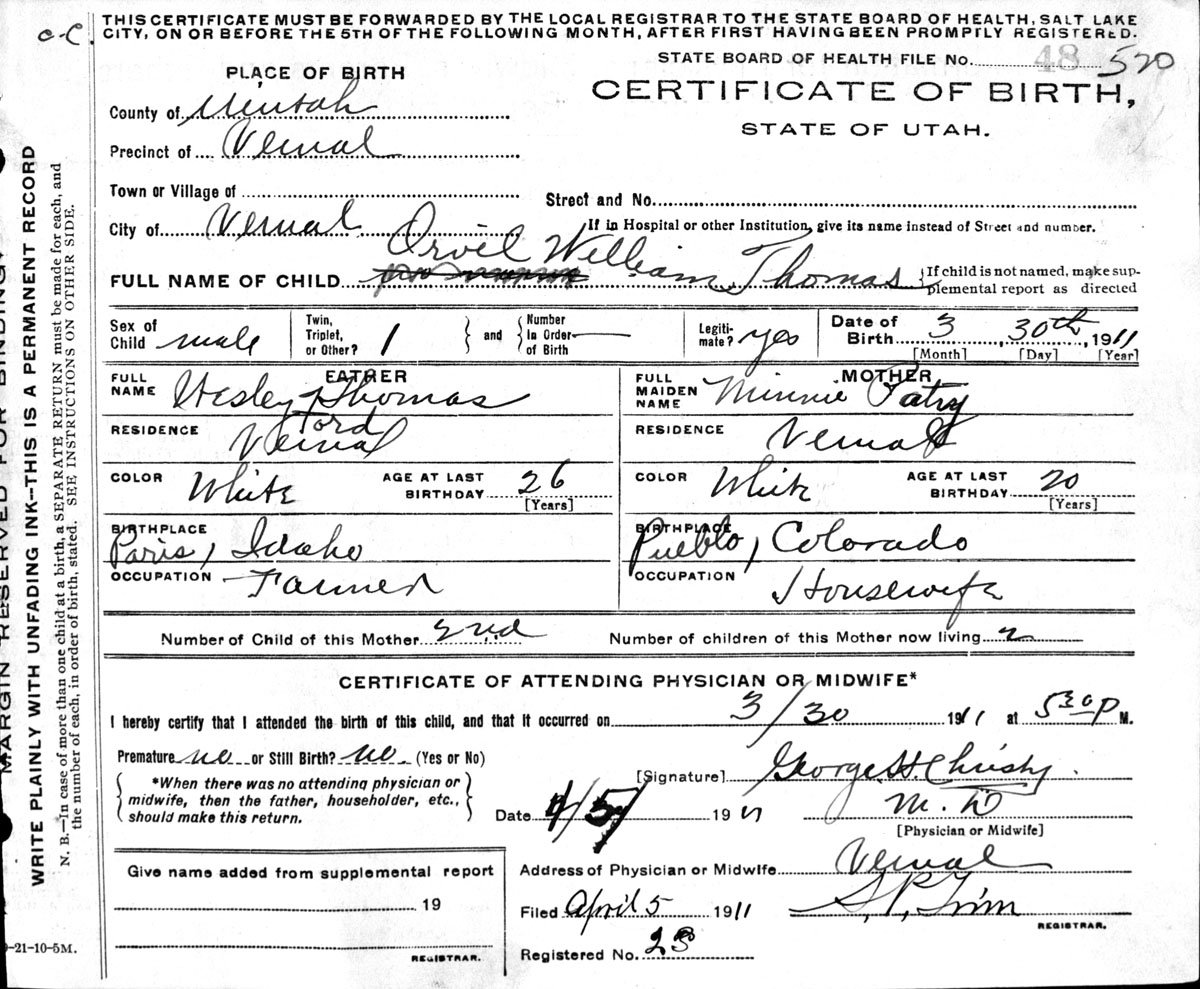 THIS CERTIFICATE MUST BE FORWARDED BY THE LOCAL REGISTRAR TO THE STATE BOARD OF HEALTH, SALT LAKE
CITY, ON OR BEFORE THE 5TH OF THE FOLLOWING MONTH, AFTER FIRST HAVING BEEN PROMPTLY REGISTERED.
c-C.
STATE BOARD OF HEALTH FILE No. 48 520
PLACE OF BIRTH
CERTIFICATE OF BIRTH,
STATE OF UTAH.
County of Uintah
Precinct of Vernal
Town or Village of
Street and No.
City of Vernal
If in Hospital or other Institution, give its name instead of Street and number.
FULL NAME OF CHILD Orvil William Thomas
If child is not named, make sup-
plemental report as directed
Sex of Child male
Twin, Triplet, or Other? 1
and
Number In Order of Birth
Legiti-mate? yes
Date of Birth 3 30th, 1911
[Month] [Day] [Year]
FATHER
FULL NAME Wesley Thomas
Ford
RESIDENCE Vernal
COLOR White
AGE AT LAST BIRTHDAY 26
[Years]
BIRTHPLACE Paris, Idaho
OCCUPATION Farmer
MOTHER
FULL MAIDEN NAME Minnie Patry
RESIDENCE Vernal
COLOR White
AGE AT LAST BIRTHDAY 20
[Years]
BIRTHPLACE Pueblo, Colorado
OCCUPATION Housewife
Number of Child of this Mother 2nd
Number of children of this Mother now living 2
CERTIFICATE OF ATTENDING PHYSICIAN OR MIDWIFE*
I hereby certify that I attended the birth of this child, and that it occurred on 3/30 1911 at 530 P M.
Premature no or Still Birth? no (Yes or No)
*When there was no attending physician or
midwife, then the father, householder, etc.,
should make this return.
[Signature] George H. Christy
M. D
[Physician or Midwife]
Date 4/5 1911
Address of Physician or Midwife Vernal
Filed April 5 1911
S. P. Trim
REGISTRAR.
Registered No. 23
Give name added from supplemental report
19
REGISTRAR.
-21-10-5M.
MARGIN RESERVED FOR BINDING.
WRITE PLAINLY WITH UNFADING INK—THIS IS A PERMANENT RECORD
N. B.—In case of more than one child at a birth, a SEPARATE RETURN must be made for each, and
the number of each, in order of birth, stated. SEE INSTRUCTIONS ON OTHER SIDE.